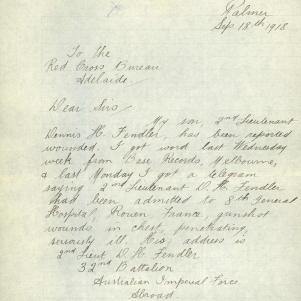 Palmer
Sep 18th 1918
To the
Red Cross Bureau
Adelaide
Dear Sirs
My son, 2nd Lieutenant
Dennis H. Fendler, has been reported
wounded. I got word last Wednesday
week from Base Records, Melbourne,
& last Monday I got a telegram
saying 2nd Lieutenant D. H. Fendler
had been admitted to 8th General
Hospital, Rouen France, gunshot
wounds in chest, penetrating,
seriously ill. His address is
2nd Lieut D. H. Fendler
32nd Battalion
Australian Imperial Force
Abroad